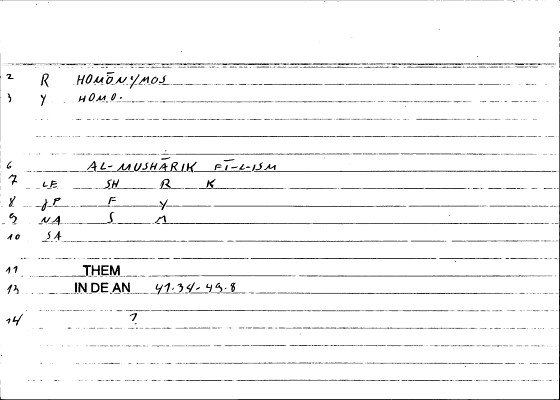 2 R HOMŌNYMOS
3 Y HOMO.
6 AL-MUSHĀRIK FĪ-L-ISM
7 LE SH R K
8 JP F Y
9 NA S M
10 SA
11 THEM
13 IN DE AN 47.34-49.8
14 ?